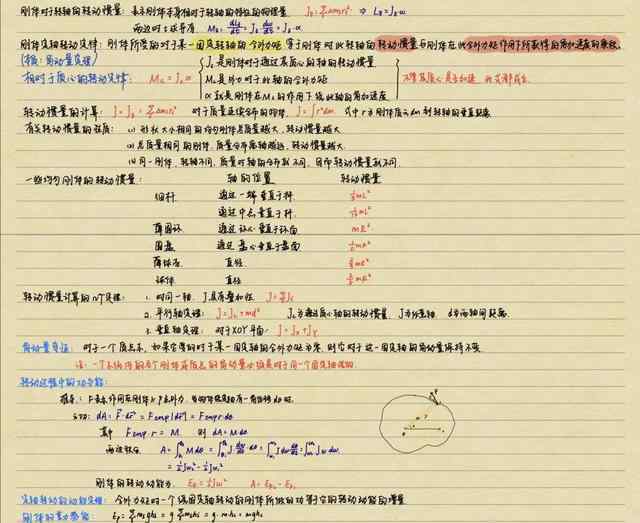 刚体对于转轴的转动惯量：表示刚体本身相对于转轴的特征的物理量 J_z = ΣΔm_i r_i² ⇒ L_z = J_z ω
两边对 t 求导有 M_z = dL_z/dt = J_z dω/dt = J_z α
刚体定轴转动定律：刚体所受的对于某一固定转轴的合外力矩等于刚体对此转轴的转动惯量与刚体在此合外力矩作用下所获得的角加速度的乘积。
(据：角动量定理)
相对于质心的转动定律：M_c = J_c α
J_c 是刚体对于通过其质心的轴的转动惯量
M_c 是外力对于此轴的合外力矩
α 就是刚体在 M_c 的作用下绕此轴的角加速度
不管其质心是否加速，此式都成立
转动惯量的计算：J = J_z = ΣΔm_i r_i² 对于质量连续分布的物体，J = ∫r²dm 式中 r 为刚体质元 dm 到转轴的垂直距离
有关转动惯量的性质：(1) 形状大小相同的均匀刚体总质量越大，转动惯量越大
(2) 总质量相同的刚体，质量分布离轴越远，转动惯量越大
(3) 同一刚体，转轴不同，质量对轴的分布就不同，因而转动惯量就不同
一些均匀刚体的转动惯量： 轴的位置 转动惯量
细杆 通过一端垂直于杆 ⅓mL²
通过中点垂直于杆 1/12 mL²
薄圆环 通过环心垂直于环面 mR²
圆盘 通过盘心垂直于盘面 ½mR²
薄球壳 直径 ⅔mR²
球体 直径 ⅖mR²
转动惯量计算的几个定理：1. 对同一轴，J具有叠加性 J = ΣJ_i
2. 平行轴定理：J = J_c + md² J_c 为通过质心轴的转动惯量 d为两轴间距离
3. 垂直轴定理：对于XOY平面：J = J_x + J_y
对于一个质点系，如果它受的对于某一固定轴的合外力矩为零，则它对于这一固定轴的角动量保持不变
注：一个系统内的各个刚体或质点的角动量必须是对于同一个固定轴说的
转动过程中的功与能：
推导：
dA = F·dr = F cosφ|dr| = F cosφ r dθ
F cosφ·r = M 则 dA = M dθ
两边积分 A = ∫M dθ = ∫J dω/dt dθ = ∫J dθ/dt dω = ∫Jω dω
= ½Jω₂² - ½Jω₁²
刚体的转动动能为 E_k = ½Jω² A = E_k₂ - E_k₁
定轴转动的动能定理：合外力矩对一个绕固定轴转动的刚体所做的功等于它的转动动能的增量
刚体的重力势能：E_p = ΣΔm_i g h_i = g ΣΔm_i h_i = g·m h_c = mgh_c